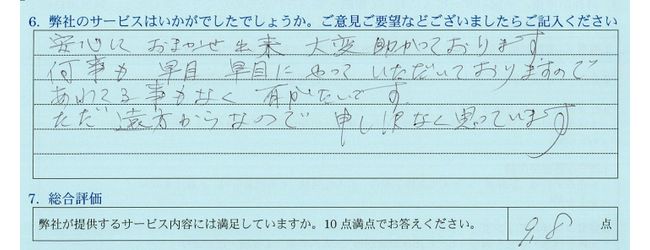 6. 弊社のサービスはいかがでしたでしょうか。ご意見ご要望などございましたらご記入ください
安心しておまかせ出来 大変助かっております
何事も 早目 早目に やって いただいておりますので
あわてる事もなく 有がたいです。
ただ 遠方からなので 申し訳なく思っています
7. 総合評価
弊社が提供するサービス内容には満足していますか。10点満点でお答えください。 9.8 点